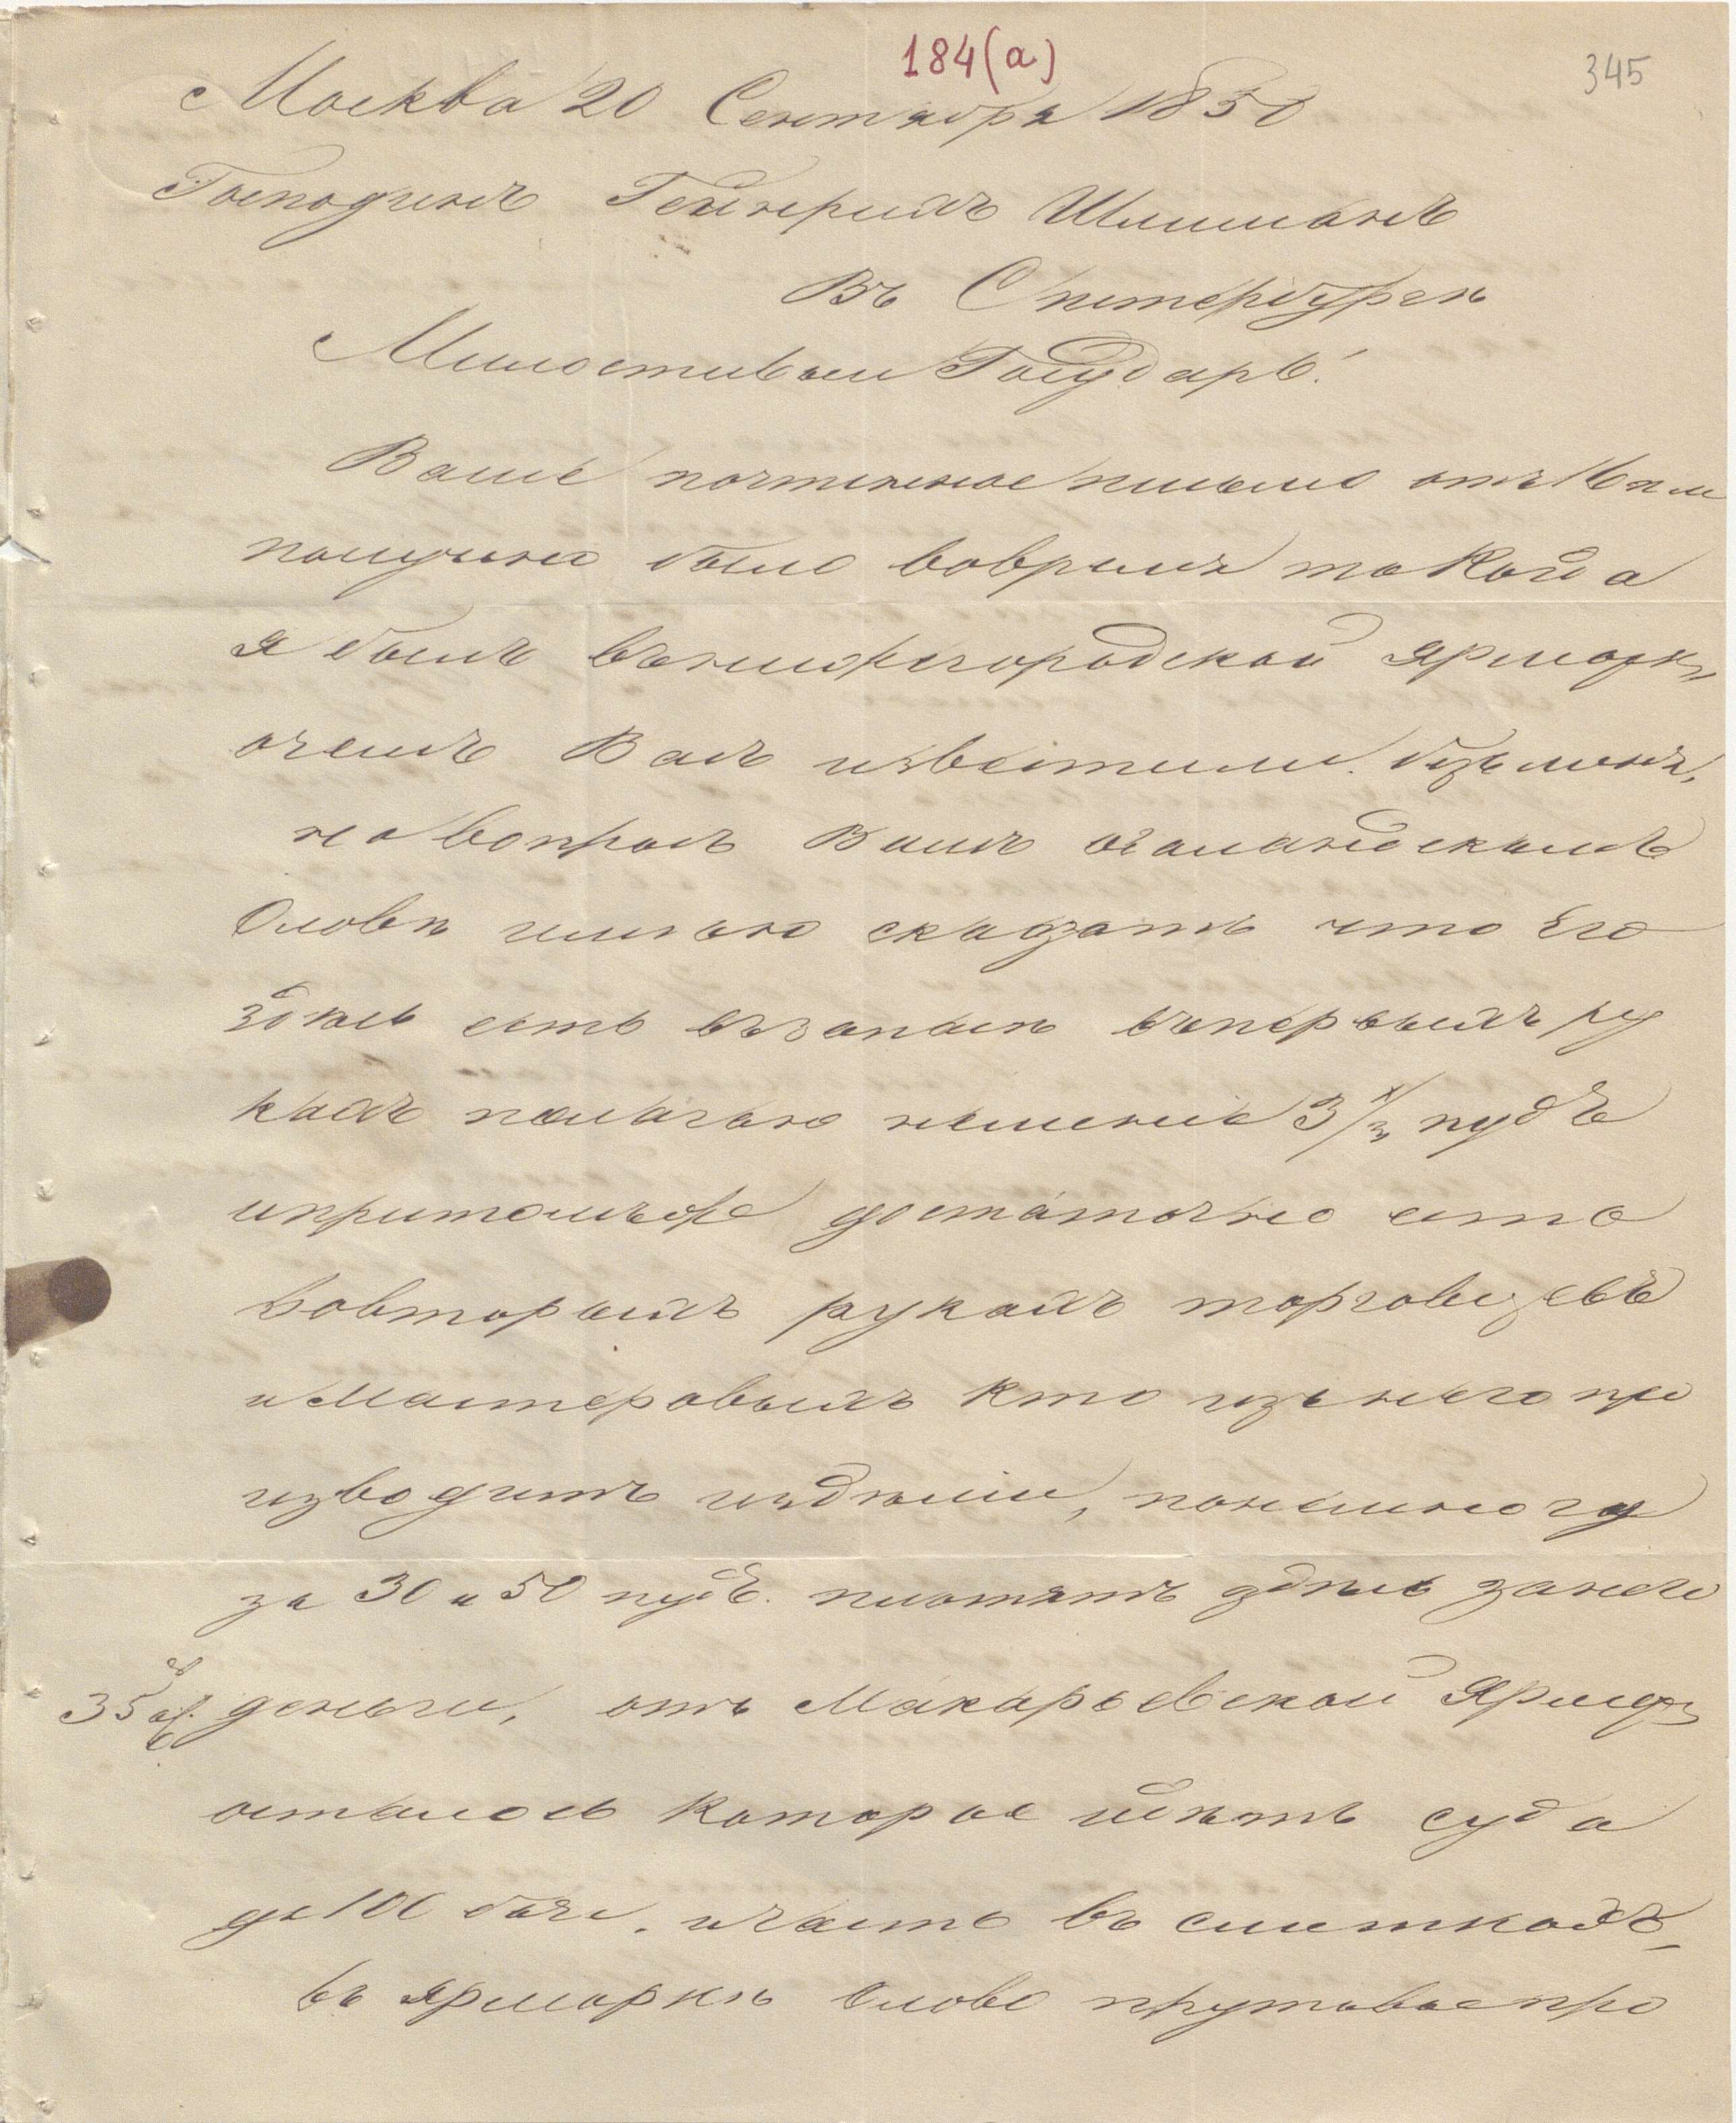 184(а)
345
Москва 20 Сентября 1850
Господинъ Гейнрихъ Шлиманъ
Въ Спитербургъ
Милостивыи Государь!
Ваше почтенное письмо отъ 16
получено было вовремя та когда
я былъ внижегородской ярмарк
очемъ Васъ известили безъ меня,
на вопросъ Вашъ оголандскомъ
Оловѣ имѣю сказать что Его
здѣсь есть взапасѣ впервыхъ ру
кахъ полагаю неменее 3/м пудъ
ипритомъже достаточно есть
Вовторыхъ рукахъ торговцевъ
и Мастеровыхъ кто изънего про
изводитъ издѣлии, понемногу
за 30 и 50 пудъ. платятъ здѣсь занего
35 деньги, отъ Макарьевской Ярмар
осталось которое идѣтъ суда
до 100 боче. ичасть въ слиткахъ
въ ярмаркѣ Олово прутовое про